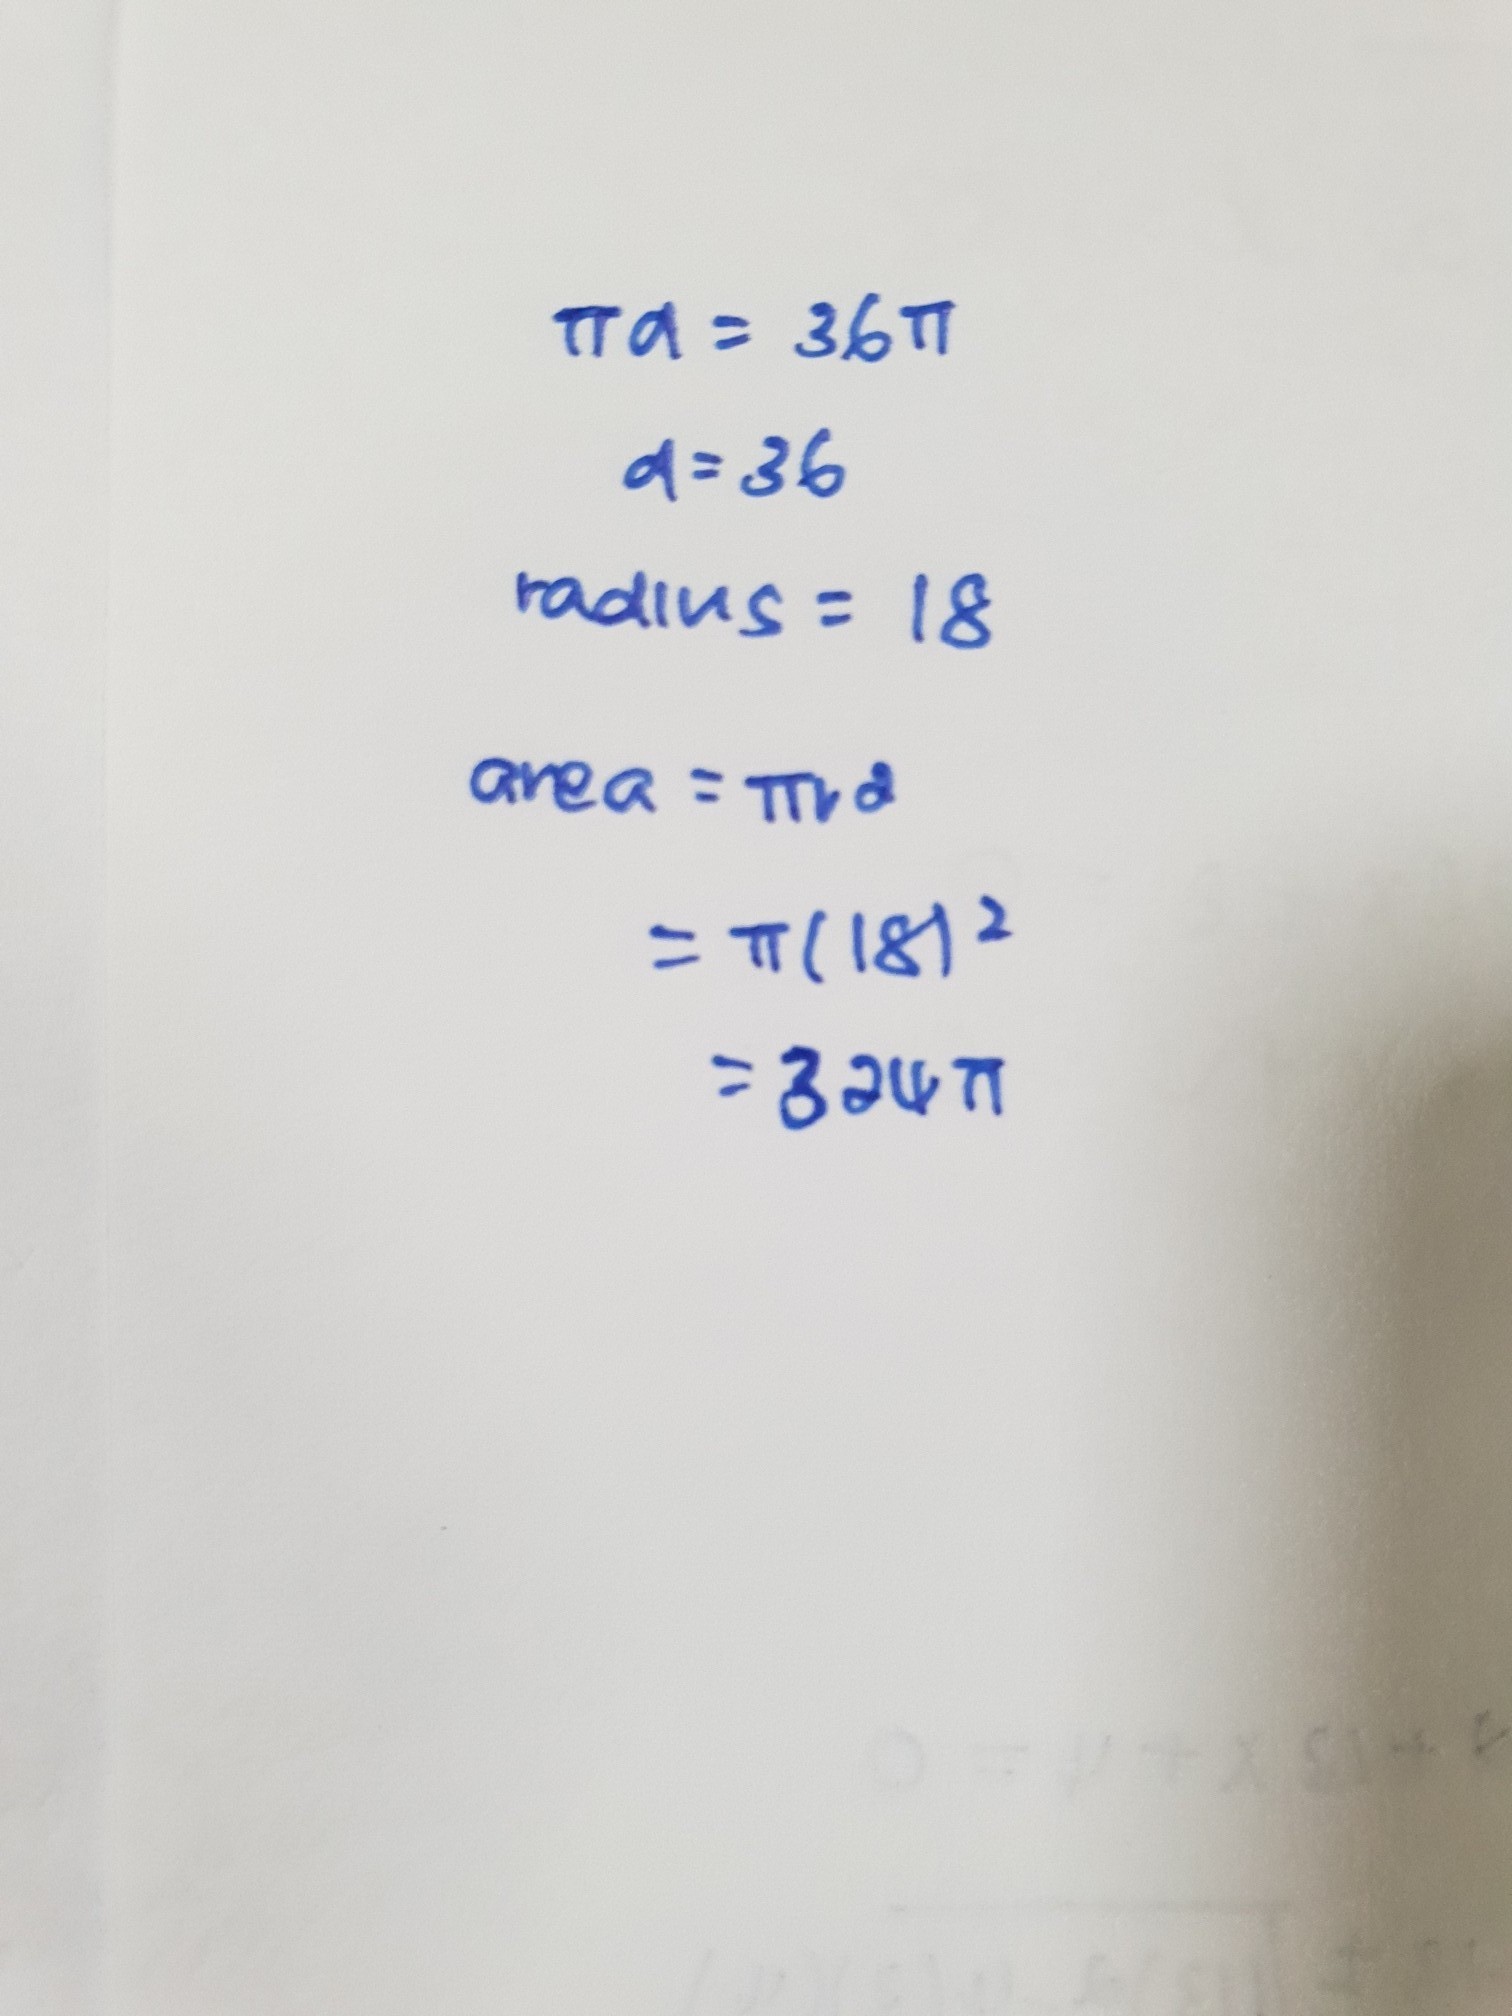 πd = 36π
d = 36
radius = 18
area = πr2
= π(18)²
= 324π